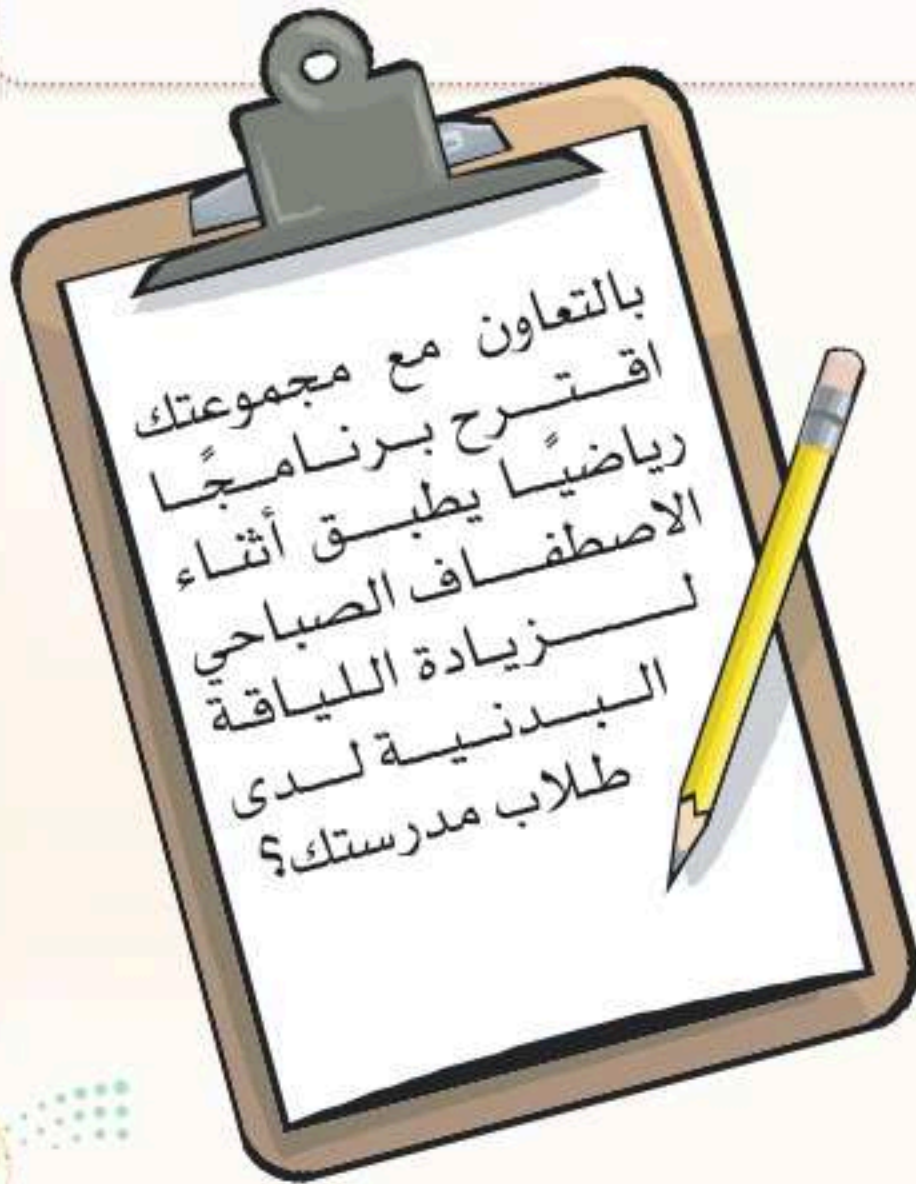 بالتعاون مع مجموعتك
اقترح برنامجًا
رياضيًا يطبق أثناء
الاصطفاف الصباحي
لزيادة اللياقة
البدنية لدى
طلاب مدرستك؟